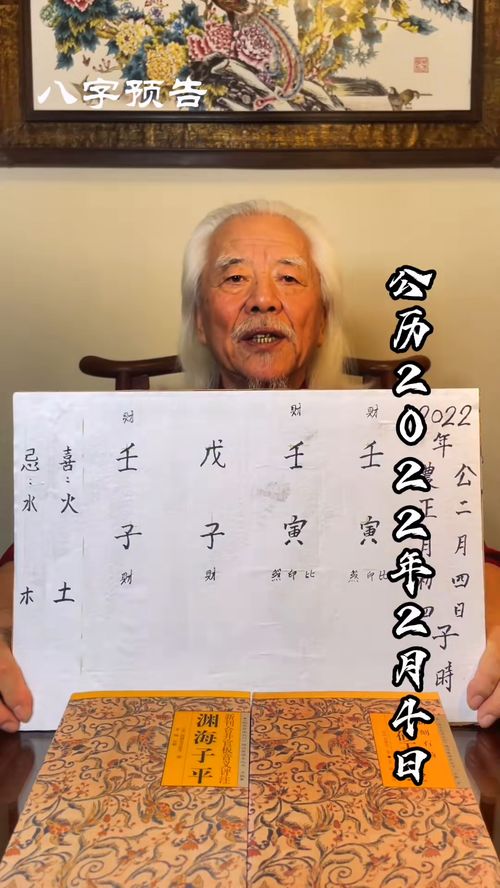 八字预告
公历2022年2月4日
2022年
公二月四日
農正月初四
子時
财
壬
寅
煞印比
财
壬
寅
煞印比
戊
子
财
财
壬
子
财
喜：火
土
忌：水
木
新刊合并官板音义评注
渊海子平